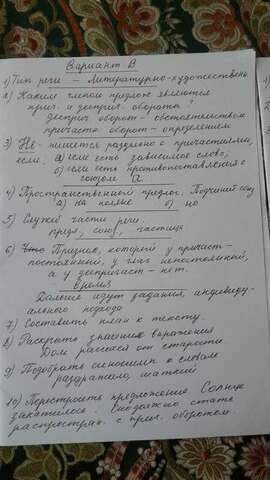 Вариант В
1) Тип речи – Литературно-художествен.
2) Каким членом предлож. являются
прич. и дееприч. обороты?
дееприч. оборот – обстоятельством
причастн. оборот – определением
3) Не – пишется раздельно с причастиями,
если: а) если есть зависимое слово,
б) если есть противопоставление с
союзом а.
4) Пространственной предлог. Подчинит. союз
а) на поляне б) но
5) Служеб. части речи.
предл, союз, частица
6) Что Признак, который у причаст-
постоянный, у глаг. непостоянный,
а у дееприч-ст – нет.
Время
Дальше идут задания, индивиду-
ального подхода
7) Составить план к тексту.
8) Раскрыть значение выражения
Дом рассохся от старости
9) Подобрать синонимы к словам
раздражало, шаткий
10) Перестроить предложение Солнце
закатилось. Оно должно стать
распростран. с прич. оборотом